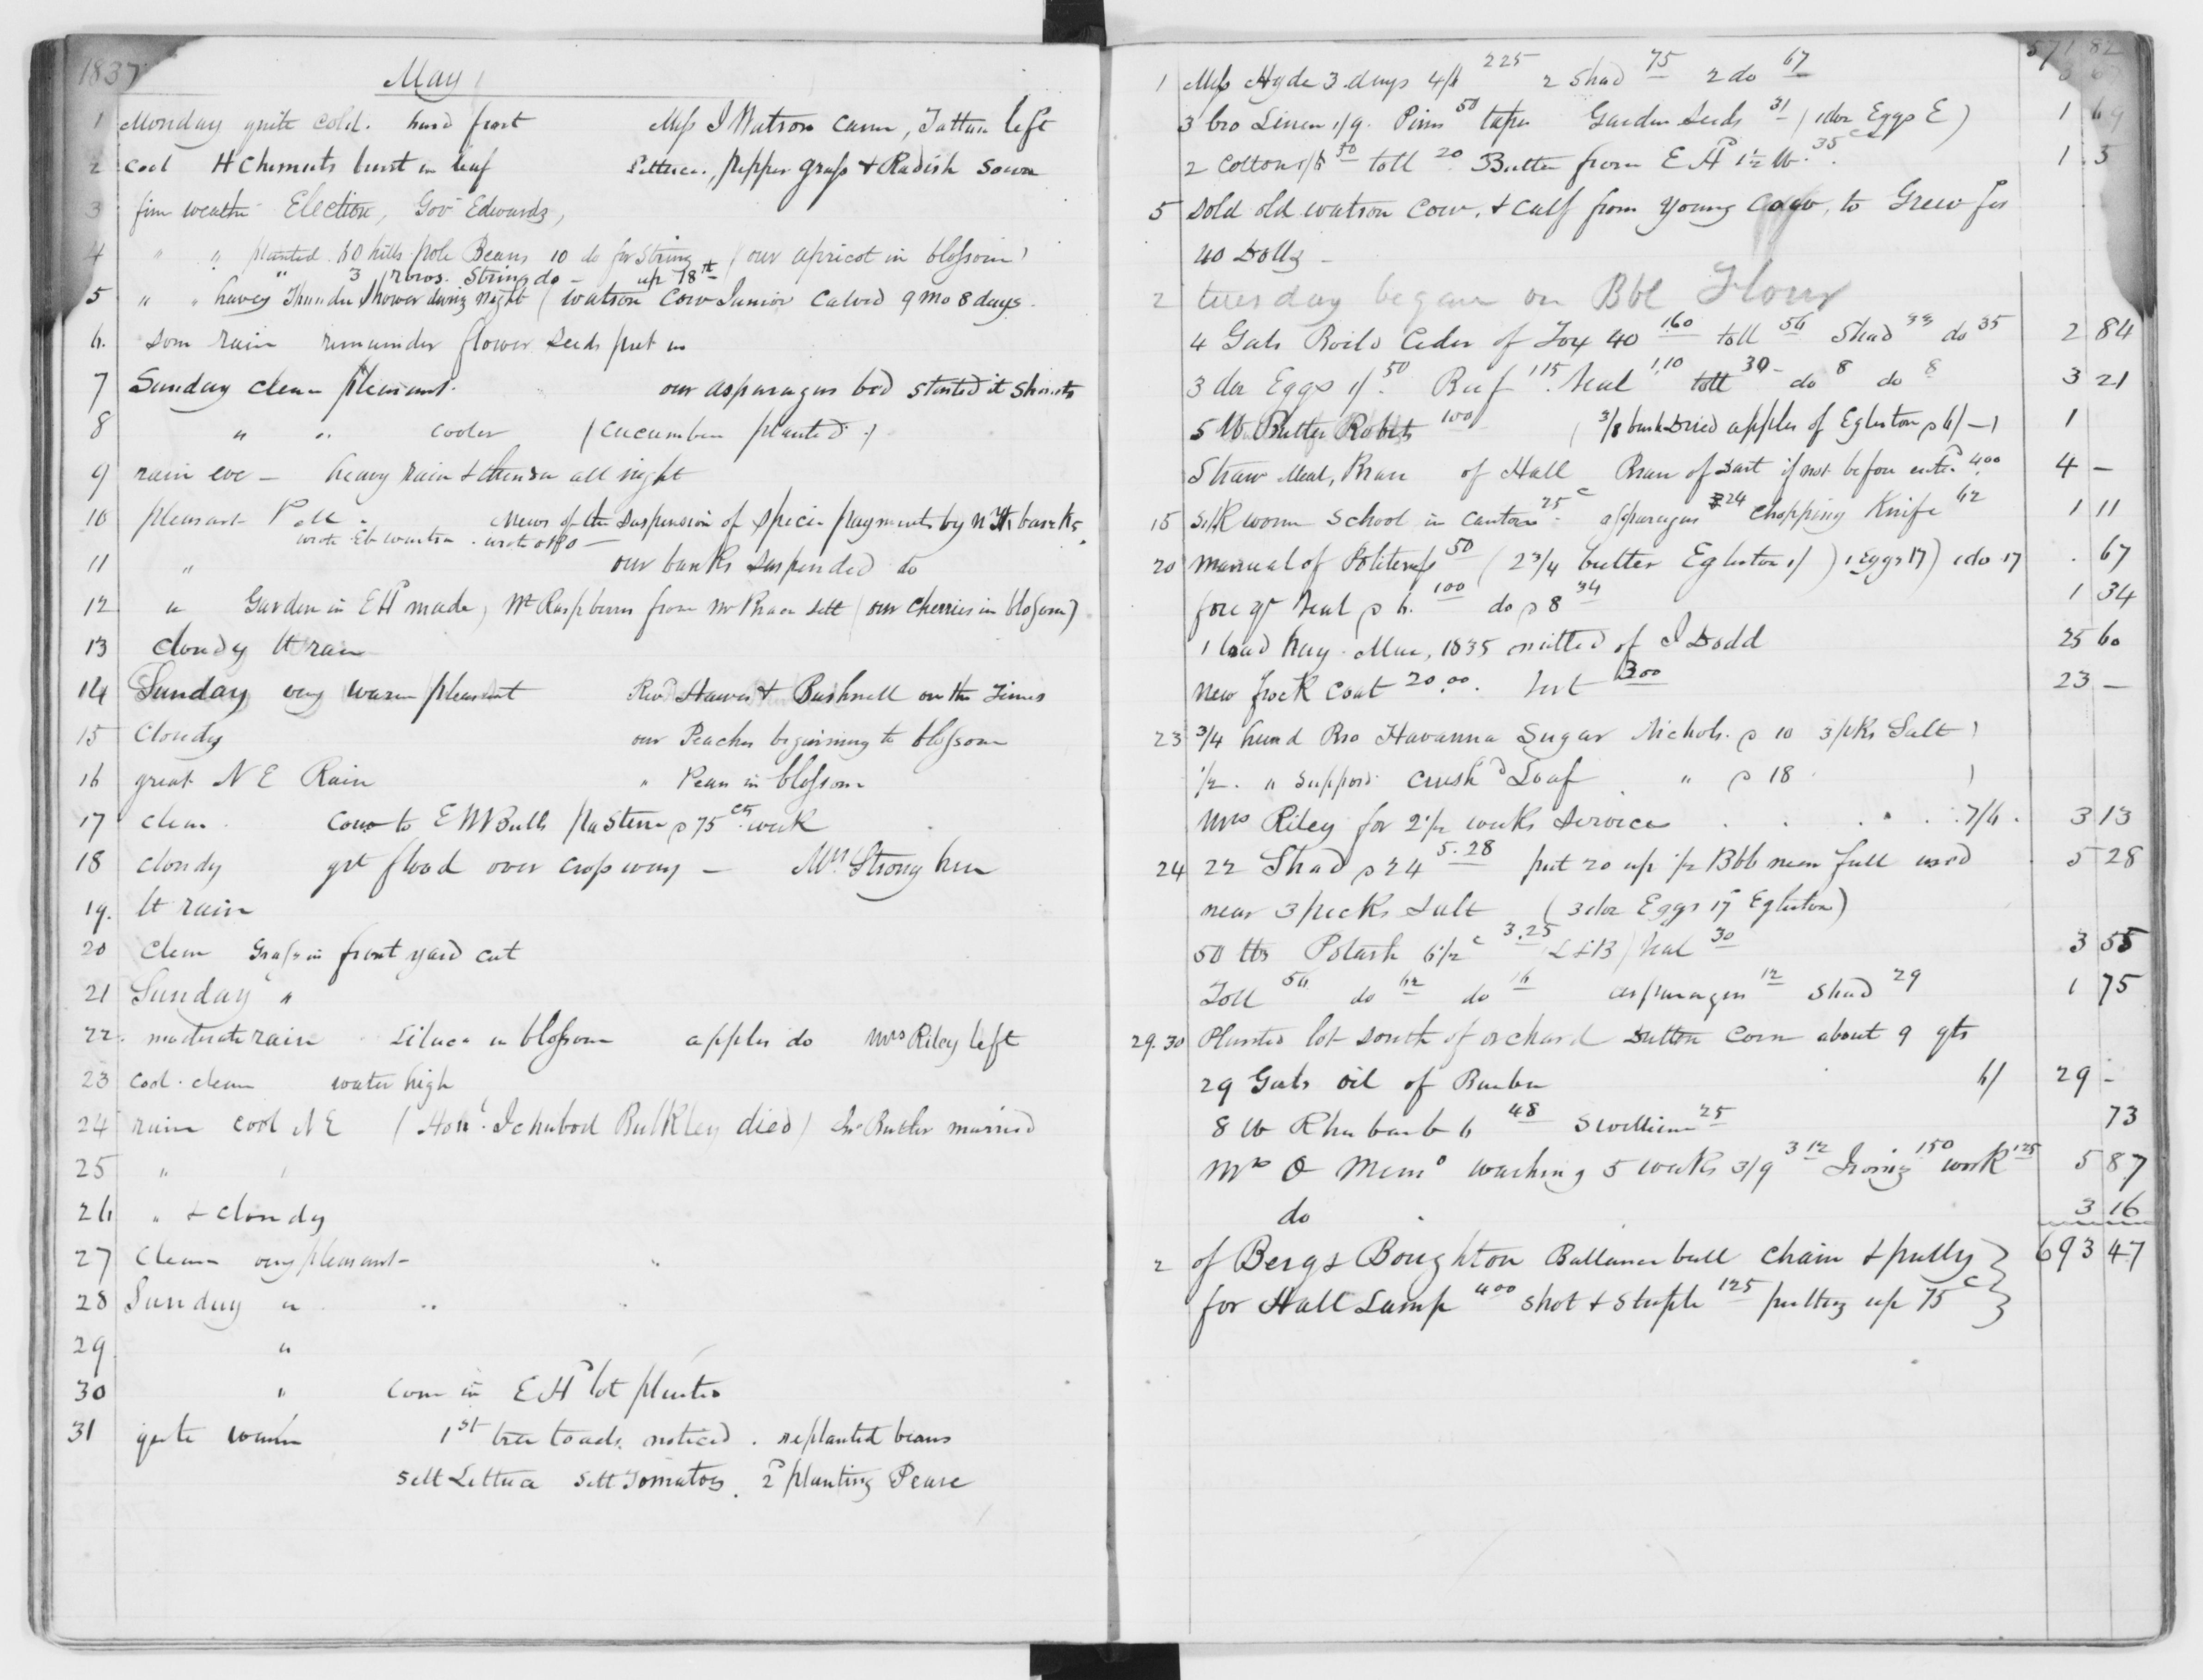 1837 May
1 Monday quite cold. hard frost Miss I Watson came, Tattan left
2 cool H Chesnuts burst in leaf Lettuce, pepper grass & Radish sown
3 fine weather Election, Gov Edwards,
4 " " planted 50 hills pole Beans 10 do for String (our apricot in blossom)
" 3 rows String do - up 18th
5 " " heavy Thunder Shower during night (Watson Cow Junior Calved 9 mo 8 days.
6. som rain remainder flower seeds put in
7 Sunday clear pleasant. our asparagus bed started it shoots
8 " " cooler (Cucumber planted)
9 rain eve - heavy rain & thunder all night
10 pleasant News of the suspension of specie payments by NY banks,
wrote Eb Watson. wrote
11 " our banks suspended do
12 " Garden in EH made, Wt Raspberries from Mr Brace sett (our cherries in blossom)
13 cloudy lt rain
14 Sunday very warm pleasant Revd Hawes & Bushnell on the Times
15 Cloudy our Peaches beginning to blossom
16 great N E Rain " Pears in blossom
17 clear Cow to E W Bulls pasture p 75 cts week
18 cloudy grt flood over cross way - Mrs Strong here
19. lt rain
20 Clear Grass in front yard cut
21 Sunday "
22. moderate rain Lilacs in blossom apples do Mrs Riley left
23 cool. clear water high
24 rain cool N E (Hon. Ichabod Bulkley died) Butler married
25 "
26 " & cloudy
27 Clear very pleasant
28 Sunday " "
29 "
30 " Corn in EH lot planted
31 quite warm 1st tree toads noticed. replanted beans
sett Lettuce sett Tomatoes. 2d planting Pease
571 82
1 Miss Hyde 3 days 4/6 225 2 Shad 75 2 do 67 3 67
3 bro Linen 1/9. Pins 50 tape Garden Seeds 31 (1 doz Eggs E) 1 69
2 Cotton 50 toll 20 Butter from EH 1½ lb. 35c 1.5
5 Sold old Watson Cow, & Calf from young to Grew for
40 Dolls -
2 tuesday began on Bbl Flour
4 Gals Boild Cider of Fox 40 160 toll 56 Shad 33 do 35 2 84
3 doz Eggs 1/ 50 Beef 115 Veal 110 toll 30 do 8 do 8 3 21
5 lb Butter Roberts 100 (3/8 bush Dried apples of Egleston p 6/-) 1
Straw Meal, Bran of Hall Bran of Dart if not before entd 400 4 -
15 Silk worm School in Canton 25c asparagus 24 Chopping Knife 62 1 11
20 Manual of Politeness 50 (2 3/4 butter Egleston 1/) 1 Eggs 17) 1 do 17 . 67
fore qr Veal p 6. 100 do p 8 34 1 34
1 load hay. Mar, 1835 omitted of I Dodd 25 60
New frock Coat 20.00. Vest 3.00 23 -
23 3/4 hund Bro Havanna Sugar Nichols. p 10 3 pks Salt)
½. " suppos. crushd Loaf " p 18)
Mrs Riley for 2½ weeks service . . . . 7/6. 3 13
24 22 Shad p 24 5.28 put 20 up ½ Bbl near full used 5 28
near 3 pecks salt (3 doz Eggs 17 Egleston)
50 lbs Potash 6½c 3.25 Veal 30 3 55
Toll 56 do 62 do 16 asparagus 12 Shad 29 1 75
29.30 Planted lot south of orchard Dutton Corn about 9 qts
29 Gals oil of Barber 6/ 29 -
8 lb Rhubarb 6 48 25 73
Mrs O washing 5 weeks 3/9 3 12 Ironing 150 work 125 5 87
do 3 16
2 of Bergs Boughton Ballance ball chain & pully } 693 47
for Hall Lamp 400 shot & Staple 125 putting up 75c }